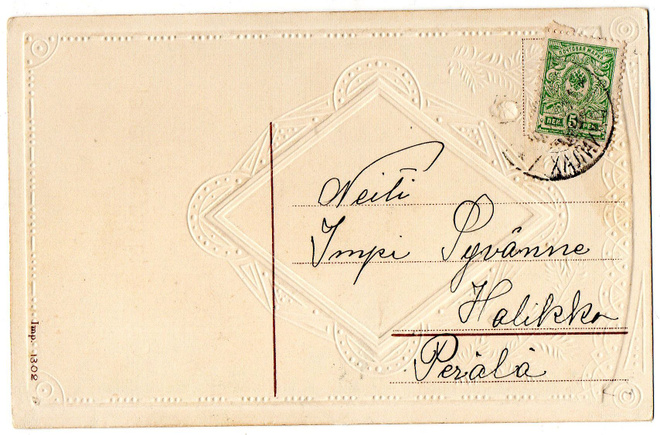 ПОЧТОВАЯ МАРКА
ПЕН. 5 PEN.
Neiti
Impi Syvänne
Halikko
Perälä
Imp. 1302